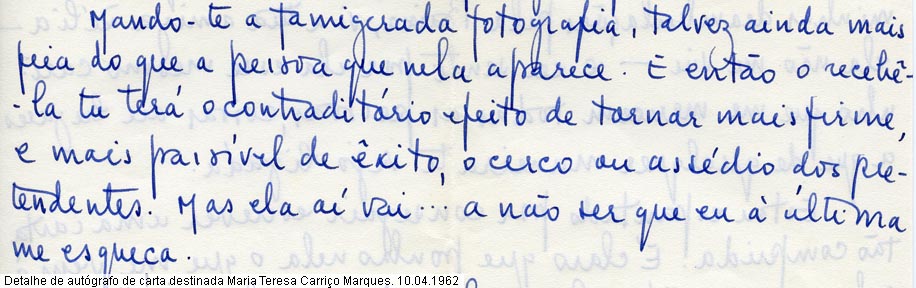 Mando-te a famigerada fotografia, talvez ainda mais
feia do que a pessoa que nela aparece. E então o recebê-
-la tu terá o contraditório efeito de tornar mais firme,
e mais passível de êxito, o cerco ou assédio dos pre-
tendentes. Mas ela aí vai... a não ser que eu à última
me esqueça.
Detalhe de autógrafo de carta destinada Maria Teresa Carriço Marques. 10.04.1962